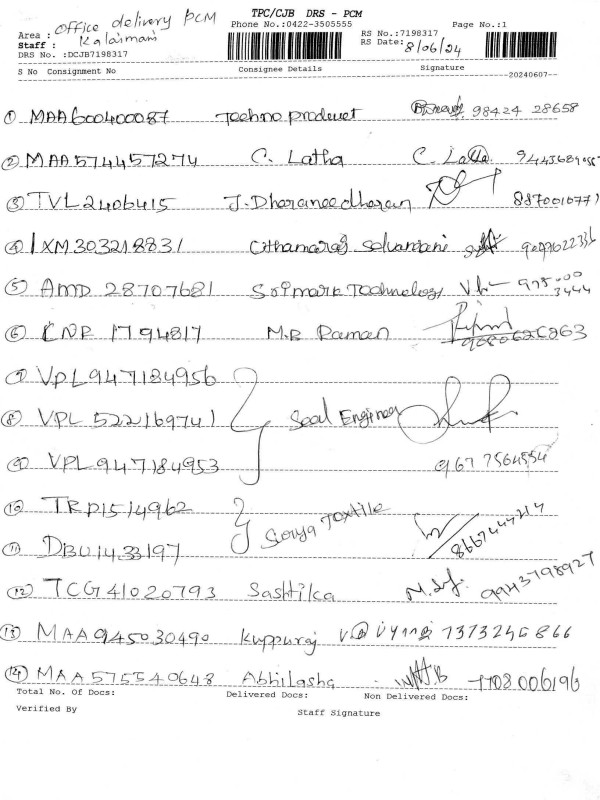 TPC/CJB DRS - PCM
Office delivery PCM
Phone No.:0422-3505555 Page No.:1
Area :
Staff : Kalaimani RS No.:7198317
RS Date: 8/06/24
DRS No. :DCJB7198317
S No Consignment No Consignee Details Signature
20240607
1 MAA600400087 Techno product 98424 28658
2 MAA574457274 C. Latha C. Latha
3 TVL2406415 J. Dharaneedharan
4 IXM303218831
5 AMD 28707681 Technology
6 CNR 1794817 M.R Raman
7 VPL947184956
8 VPL 522169741 Seal Engineer
9 VPL947184953 9677564554
10 TRP1514962
Surya Textile
11 DBU1433197
12 TCG41020793 Sashtika 9943798927
13 MAA945030490 Kuppuraj
14 MAA575540648 Abhilasha
Total No. Of Docs: Delivered Docs: Non Delivered Docs:
Verified By Staff Signature